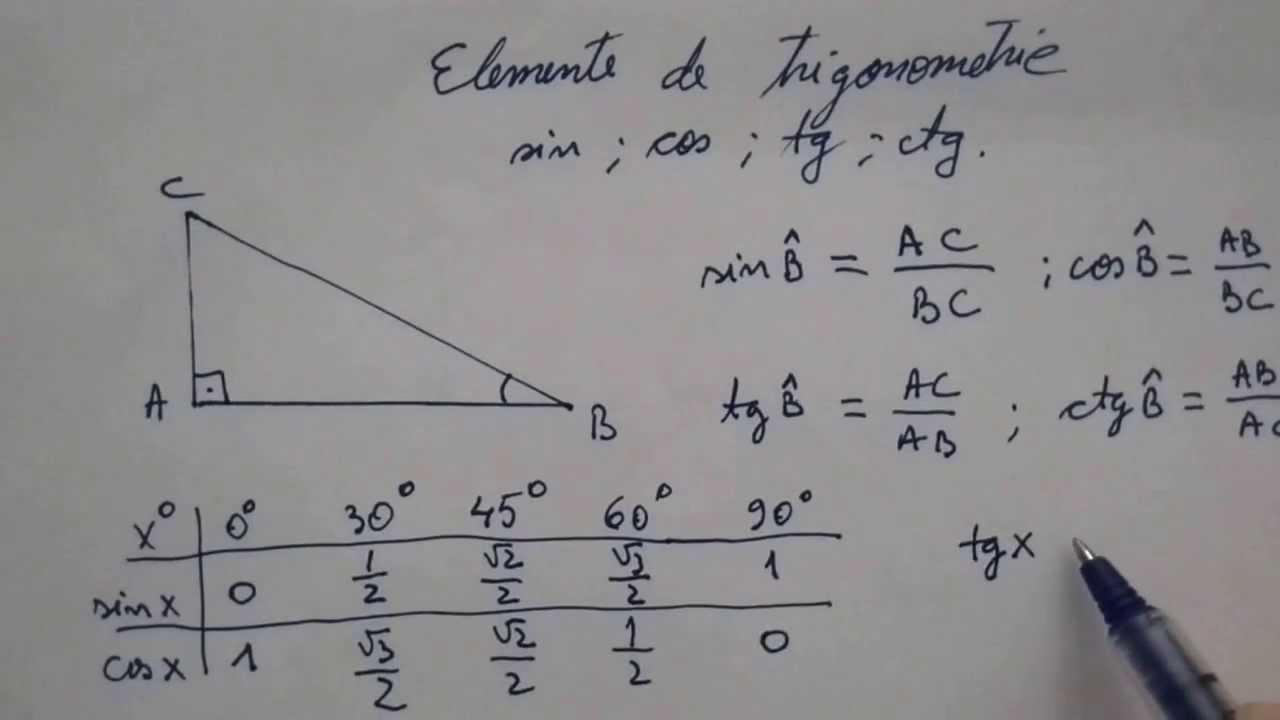 Elemente de trigonometrie
sin ; cos ; tg ; ctg.
C
A
B
sin B̂ = AC/BC ; cos B̂ = AB/BC
tg B̂ = AC/AB ; ctg B̂ = AB/AC
x° 0° 30° 45° 60° 90°
sin x 0 1/2 √2/2 √3/2 1
cos x 1 √3/2 √2/2 1/2 0
tg x